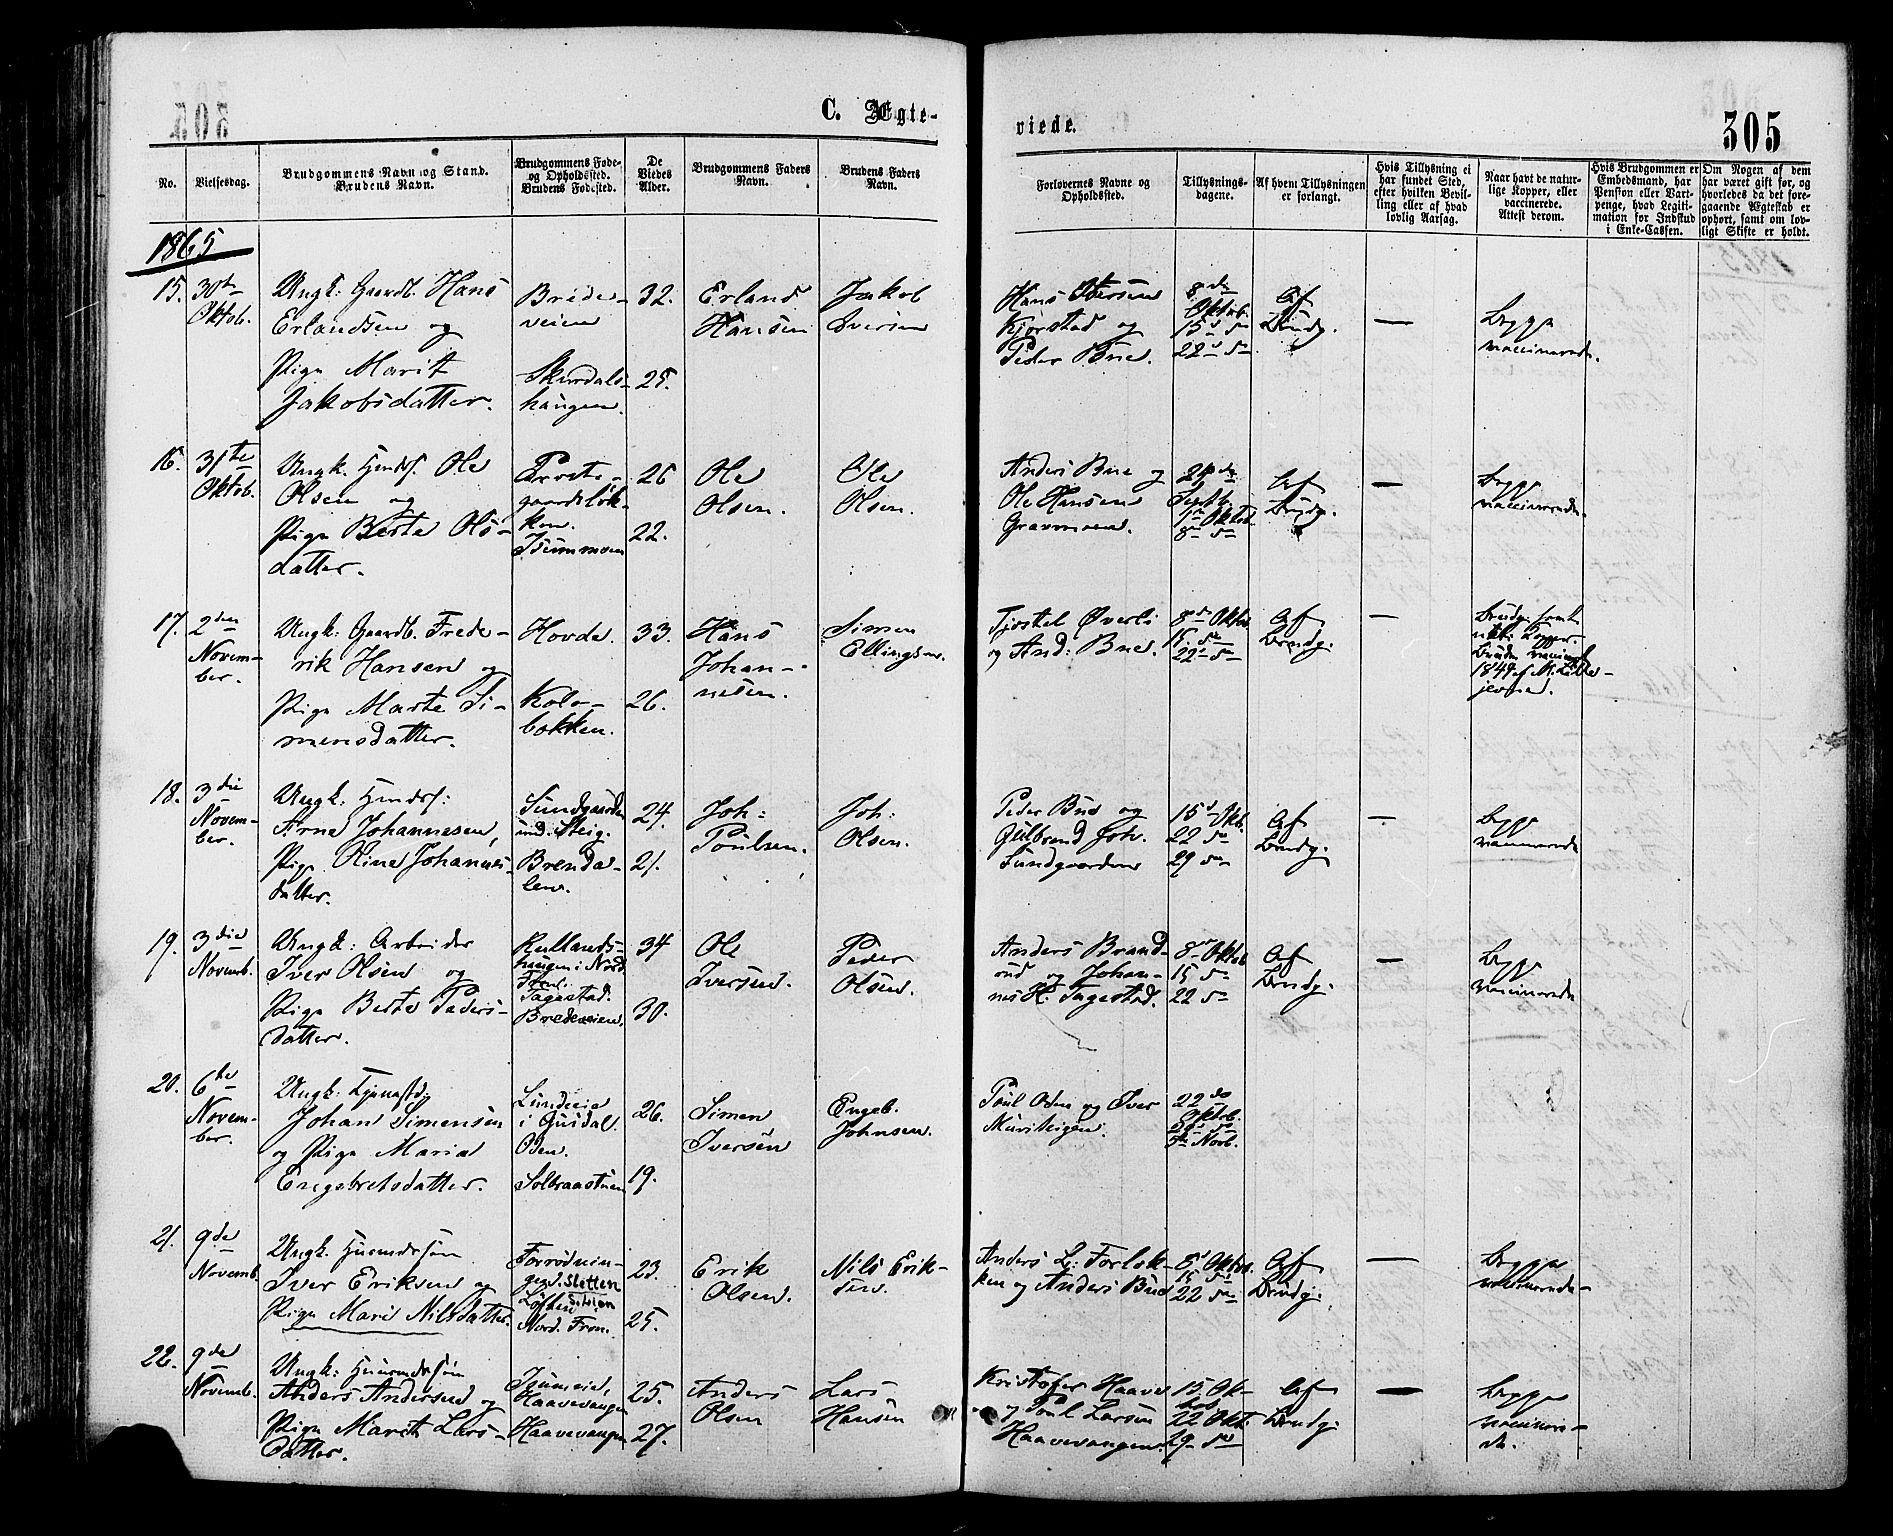 C. Ægte-
viede.
305
No.
Vielsesdag.
Brudgommens Navn og Stand.
Brudens Navn.
Brudgommens Føde-
og Opholdssted.
Brudens Fødested.
De
Viedes
Alder.
Brudgommens Faders
Navn.
Brudens Faders
Navn.
Forlovernes Navne og
Opholdssted.
Tillysnings-
dagene.
Af hvem Tillysningen
er forlangt.
Hvis Tillysning ei
har fundet Sted,
efter hvilken Bevil-
ling eller af hvad
lovlig Aarsag.
Naar havt de natur-
lige Kopper, eller
vaccinerede.
Attest derom.
Hvis Brudgommen er
Embedsmand, har
Pension eller Vart-
penge, hvad Legiti-
mation for Indskud
i Enke-Cassen.
Om Nogen af dem
har været gift før, og
hvorledes da det fore-
gaaende Ægteskab er
ophørt, samt om lov-
ligt Skifte er holdt.
1865
15.
30te
Oktob.
Ungk: Gaardb. Hans
Erlandsen og
Pige Marit
Jakobsdatter.
Brede-
veien
Skurdals-
haugen.
32.
25.
Erland
Hansen
Jakob
Iversen
Hans Iversen
Kjørstad og
Peder Bue.
8de
Oktob.
15d Do
22d Do
Af
Brudg.
—
Begge
vaccinerede.
16.
31te
Oktob.
Ungk. Husmds. Ole
Olsen og
Pige Berte Ols-
datter.
Præste-
gaardsløk-
ken.
Isummoen
26
22.
Ole
Olsen.
Ole
Olsen.
Anders Bue og
Ole Hansen
Gravmoen.
24de
Septb.
1ste Oktob.
8de Do
Af
Brudg.
—
Begge
vaccinerede.
17.
2den
Novem-
ber.
Ungk: Gaardb. Frede-
rik Hansen og
Pige Marte Si-
mensdatter.
Hovde.
Kolo-
bakken.
33.
26.
Hans
Johan-
nesen.
Simen
Ellingsen.
Tjøstel Øverli
og And: Bue.
8de Oktob.
15. Do
22d Do
Af
Brudg.
—
Brudg. havt
nat. Kopper.
Bruden vaccineret
1849 af M. Lille-
jevne.
18.
3die
Novem-
ber.
Ungk. Husmds:
Arne Johannesen,
Pige Oline Johannes-
datter.
Sundgaarden
und. Steig.
Brenda-
len.
24.
21.
Joh:
Poulsen.
Joh:
Olsen.
Peder Bue og
Gulbrand Joh.
Sundgaarden
15d Okb.
22 Do
29 Do
Af
Brudg.
—
Begge
vaccinerede
19.
3die
Novemb.
Ungk: Arbeider
Iver Olsen og
Pige Berte Peders-
datter.
Rullands-
haugen i Nord.
Fron.
Tagestad.
Bredeveien.
34
30.
Ole
Iversen.
Peder
Olsen.
Anders Brand-
rud og Johan-
nes H. Tagestad.
8de Oktob
15 Do
22 Do
Af
Brudg.
—
Begge
vaccinerede
20.
6te
Novem-
ber.
Ungk: Tjenestd.
Johan Simensen
og Pige Maria
Engebretsdatter.
Lundeeie
i Gusdal.
Oden.
Solbraastuen
26.
19.
Simen
Iversen
Engeb.
Johnsen.
Poul Oden og Iver
Mürsteigen.
22de
Oktob.
29d Do
5te Novb.
21.
9de
Novemb.
Ungk. Husmdssøn
Iver Eriksen og
Pige Mari Nilsdatter.
Forrødnin-
gen. Sletten
Løften
Nord. Fron.
23.
25.
Erik
Olsen.
Nils Erik-
sen.
Anders L: Forløk-
ken og Anders Bue
8d Oktob.
15 Do
22 Do
Af
Brudg.
—
Begge
vaccinerede.
22.
9de
Novemb.
Ungk: Husmdssøn
Anders Andersen og
Pige Marit Lars-
datter.
Isumeie,
Haavevangen
Haavevangen
25.
27.
Anders
Olsen
Lars
Hansen
Kristofer Haave
og Poul Larsen
Haavevangen.
15. Ok-
tob
22 Okt.
29 Do
Af
Brudg.
—
Begge
vaccinere-
de.